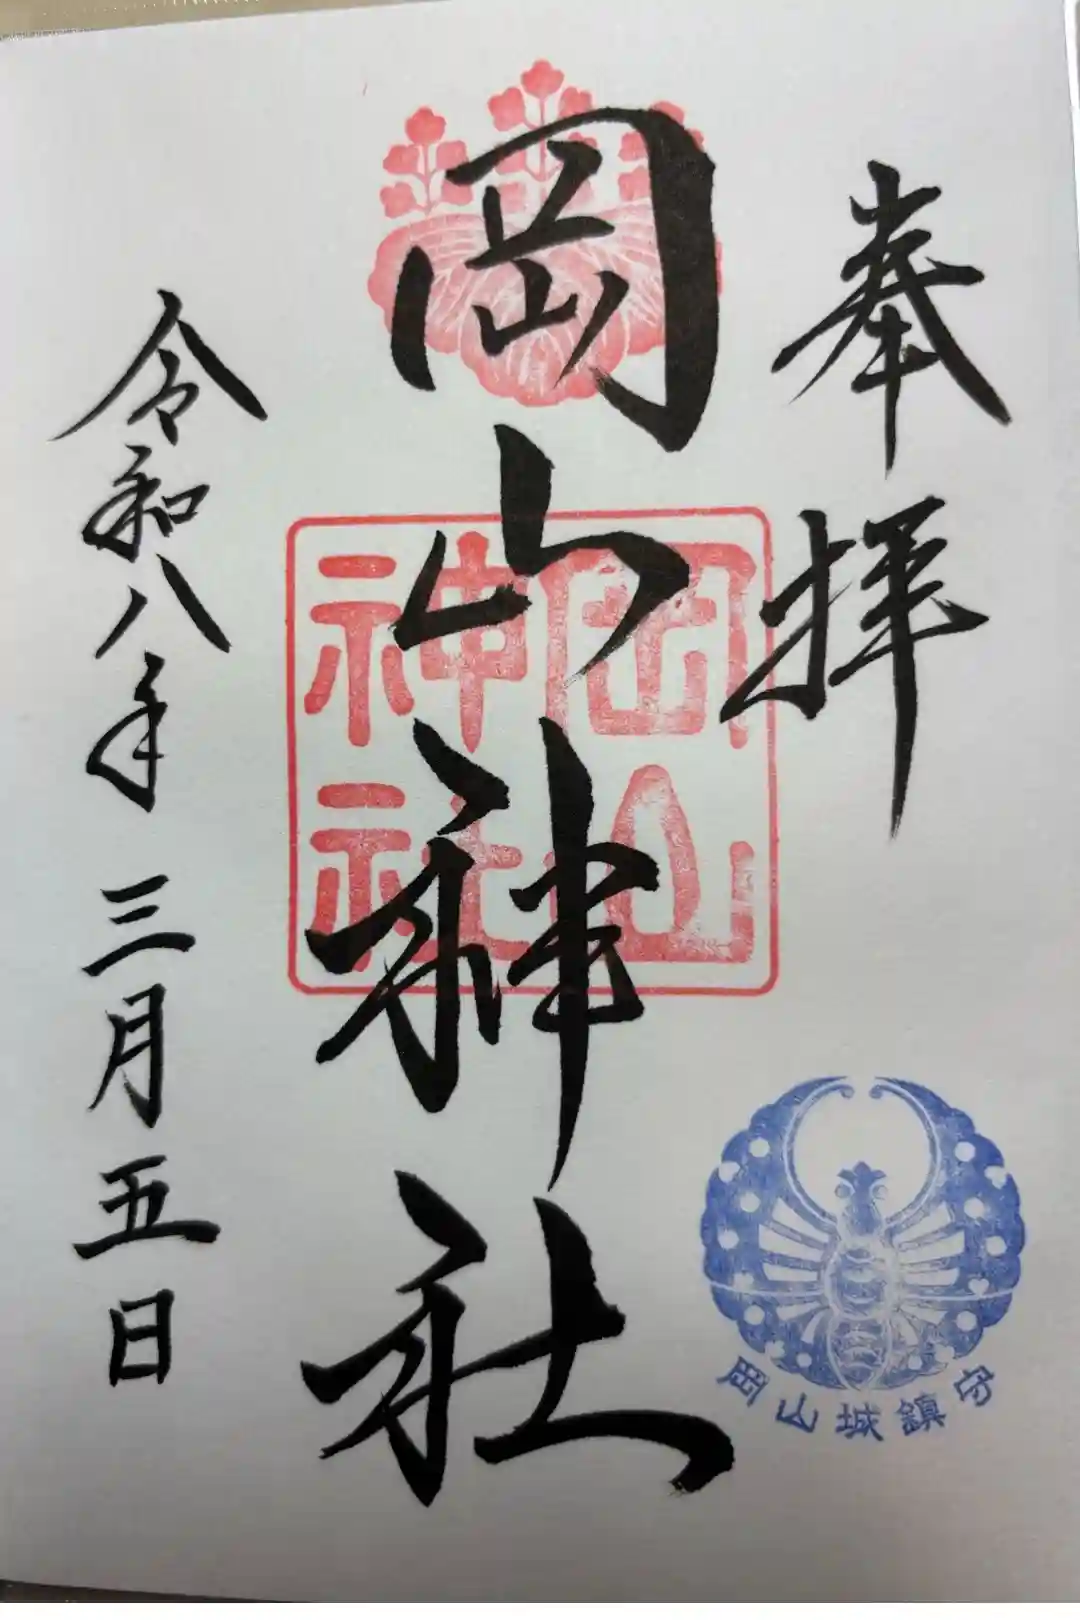 奉拝
岡山神社
岡山神社
令和八年三月五日
岡山城鎮守